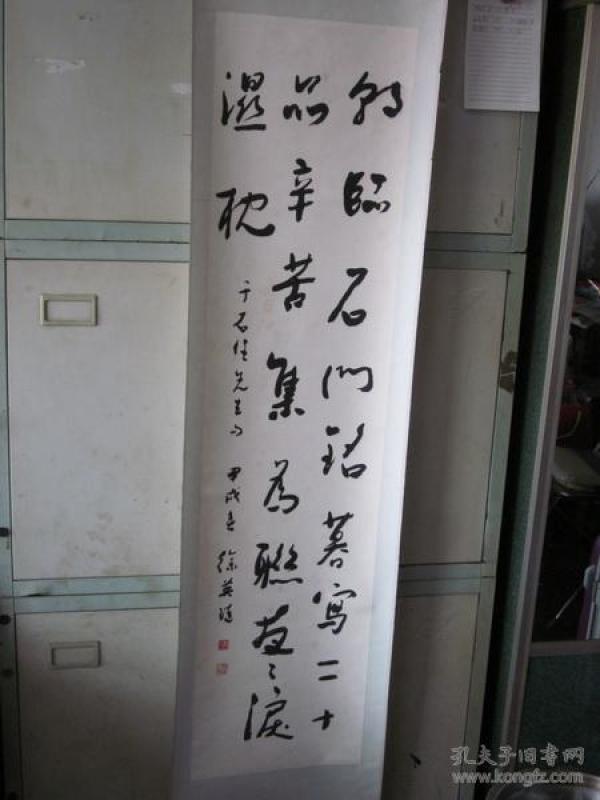 朝臨石門銘暮寫二十
品辛苦集為聯夜々淚
濕枕
于右任先生句 甲戌春 徐英
孔夫子旧书网
www.kongfz.com